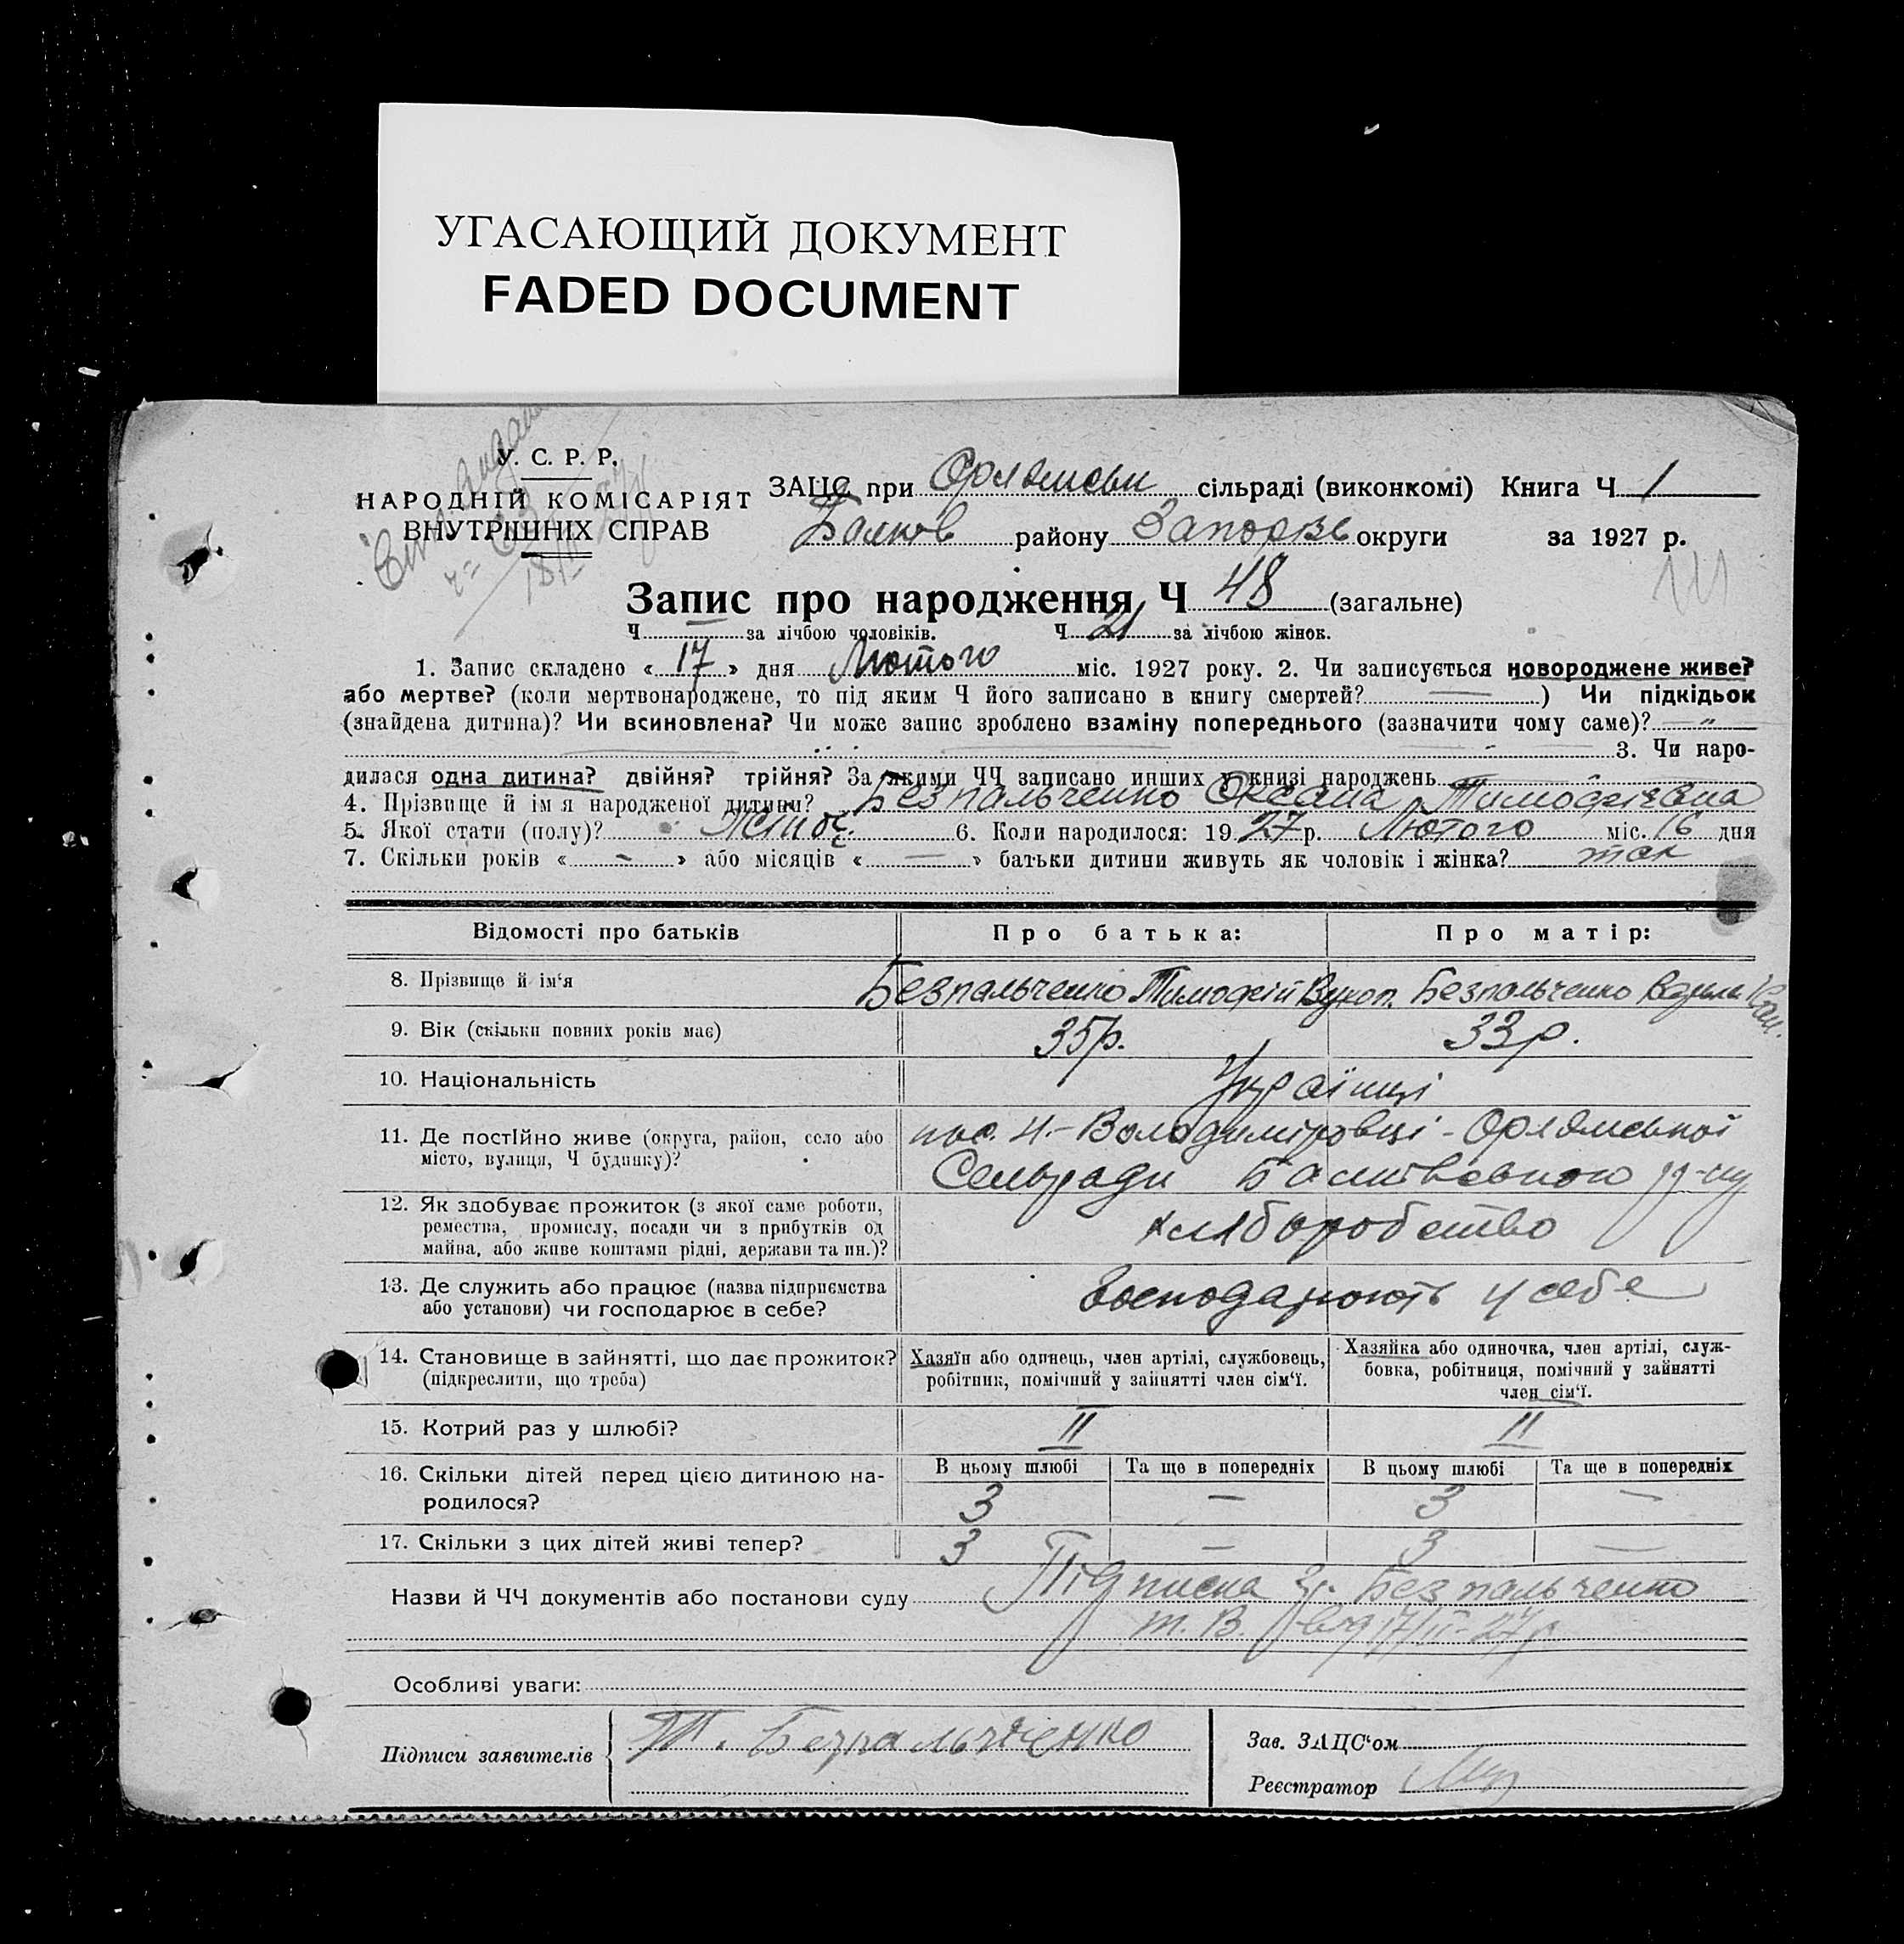 УГАСАЮЩИЙ ДОКУМЕНТ
FADED DOCUMENT
У. С. Р. Р.
НАРОДНІЙ КОМІСАРІЯТ
ВНУТРІШНІХ СПРАВ
ЗАЦС при Орлянськ сільраді (виконкомі) Книга Ч 1
району Запорізь округи за 1927 р.
Запис про народження Ч 48 (загальне)
Ч — за лічбою чоловіків. Ч 21 за лічбою жінок.
1. Запис складено « 17 » дня Лютого міс. 1927 року. 2. Чи записується новороджене живе?
або мертве? (коли мертвонароджене, то під яким Ч його записано в книгу смертей? — ) Чи підкідьок
(знайдена дитина)? Чи всиновлена? Чи може запис зроблено взаміну попереднього (зазначити чому саме)? — „ —
3. Чи наро-
дилася одна дитина? двійня? трійня? За якими ЧЧ записано инших у книзі народжень —
4. Прізвище й ім'я народженої дитини? Безпальченко Оксана Тимофієвна
5. Якої стати (полу)? Жіноч. 6. Коли народилося: 1927 р. Лютого міс. 16 дня
7. Скільки років « - » або місяців « — » батьки дитини живуть як чоловік і жінка? так
Відомості про батьків Про батька: Про матір:
8. Прізвище й ім'я Безпальченко Тимофій Безпальченко
9. Вік (скільки повних років має) 35р. 33р.
10. Національність Українці
11. Де постійно живе (округа, район, село або пос. Н.-Володимировці - Орлянської
місто, вулиця, Ч будинку)? Сельради р-ну
12. Як здобуває прожиток (з якої саме роботи,
ремества, промислу, посади чи з прибутків од хліборобство
майна, або живе коштами рідні, держави та ин.)?
13. Де служить або працює (назва підприємства Господарюють у себе
або установи) чи господарює в себе?
14. Становище в зайнятті, що дає прожиток? Хазяїн або одинець, член артілі, службовець, Хазяйка або одиночка, член артілі, служ-
(підкреслити, що треба) робітник, помічний у зайнятті член сім'ї. бовка, робітниця, помічний у зайнятті
член сім'ї.
15. Котрий раз у шлюбі? II II
16. Скільки дітей перед цією дитиною на- В цьому шлюбі Та ще в попередніх В цьому шлюбі Та ще в попередніх
родилося? 3 — 3 —
17. Скільки з цих дітей живі тепер? 3 — 3 —
Назви й ЧЧ документів або постанови суду Підписка гр. Безпальченко
Т. В. від 17/II-27р
Особливі уваги:
Підписи заявителів Т. Безпальченко
Зав. ЗАЦС'ом
Реєстратор